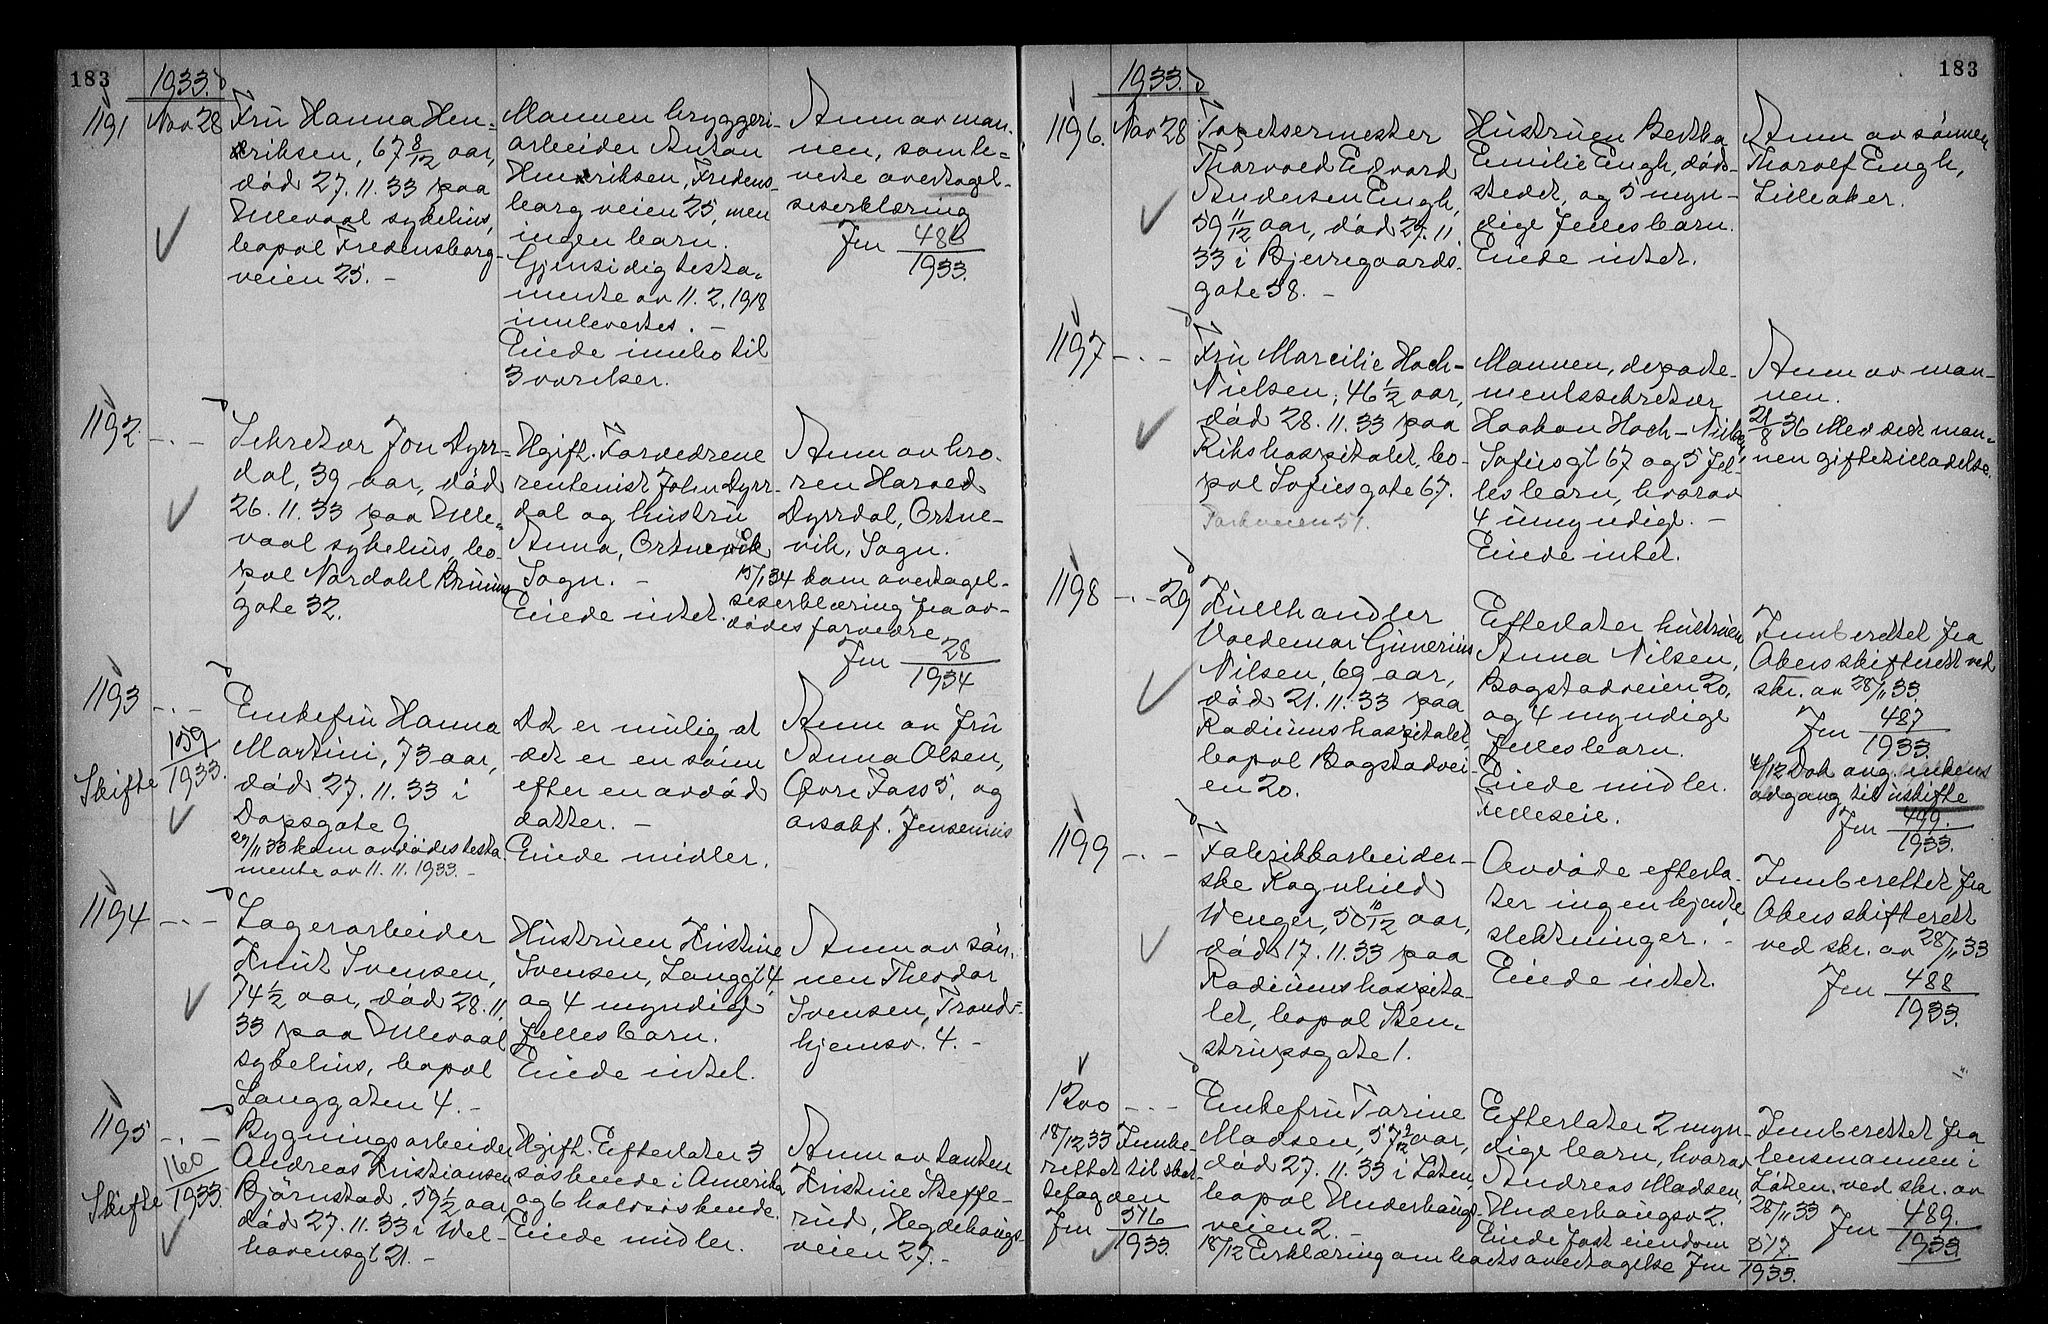 183
1933.
1191
Nov 28
Fru Hanna Hen=
driksen, 67 8/12 aar,
död 27.11.33 paa
Ullevaal sykehus,
bopel Fredensborg-
veien 25. -
Mannen bryggeri-
arbeider Anton
Hendriksen, Fredens-
borgveien 25, men
ingen barn.
Gjensidig testa-
mente av 11.2.1918
innlevertes. -
Eiede innbo til
3 værelser.
Anm av man-
nen, som le=
verte overtagel-
seserklæring
Jnr 486
1933.
1192
- . -
Sekretær Jon Dyrr=
dal, 39 aar, död
26.11.33 paa Ulle-
vaal sykehus, bo-
pæl Nordahl Bruuns
gate 32.
Ugift. Forældrene
rentenist John Dyrr-
dal og hustru
Anna, Ortnevik
Sogn. -
Eiede intet.
Anm av bro-
ren Harald
Dyrrdal, Ortne-
vik, Sogn.
15/1 34 kom overtagel-
seserklæring fra av-
dödes forældre
Jnr 28
1934
1193
- . -
159
1933.
Skifte
Enkefru Hanna
Martini, 73 aar,
död 27.11.33 i
Dopsgate 9
29/11 33 kom avdödes testa-
mente av 11.11.1933. -
Det er mulig at
det er en sönn
efter en avdöd
datter. -
Eiede midler.
Anm av fru
Anna Olsen,
Övre Foss 5, og
o.r.sakf. Jensenius
1194
- . -
Lagerarbeider
Knut Svensen,
74 1/2 aar, död 28.11.
33 paa Ullevaal
sykehus, bopæl
Langgaten 4. -
Hustruen Kristine
Svensen, Langgt 4,
og 4 myndige
fellesbarn.
Eiede intet.
Anm av sön-
nen Theodor
Svensen, Trond=
hjemsv. 4. -
1195
- . -
160
1933.
Skifte
Bygningsarbeider
Andreas Kristiansen
Björnstad, 59 1/2 aar,
död 27.11.33 i Wel-
havensgt 21. -
Ugift. Efterlater 3
söskende i Amerika
og 6 halvsöskende.
Eiede midler.
Anm av tanten
Kristine Steffe-
rud, Hegdehaugs-
veien 27. -
183
1933.
1196.
Nov 28
Tapetsermester
Thorvald Edvard
Andersen Engh,
59 11/12 aar, död 27.11
33 i Bjerregaards-
gate 58. -
Hustruen Bertha
Emilie Engh, död-
stedet, og 5 myn-
dige fellesbarn.
Eiede intet.
Anm av sönnen
Thorolf Engh,
Lilleaker.
1197
- . -
Fru Marcilie Hoch-
Nielsen, 46 1/2 aar,
död 28.11.33 paa
Rikshospitalet, bo-
pæl Sofiesgate 67.
Parkveien 51.
Mannen, departe-
mentssekretær
Haakon Hoch-Nielsen,
Sofiesgt 67 og 5 fel-
lesbarn, hvorav
4 umyndige. -
Eiede intet.
Anm av man-
nen.
21/8 36 Meddelt man-
nen giftetilladelse.
1198
- . - 29
Kullhandler
Valdemar Gunerius
Nilsen, 69 aar,
död 21.11.33 paa
Radiumshospitalet,
bopæl Bogstadvei-
en 20.
Efterlater hustruen
Anna Nilsen,
Bogstadveien 20,
og 4 myndige
fellesbarn.
Eiede midler.
Felleseie.
Innberettet fra
Akers skifterett ved
skr. av 28/11 33.
Jnr 487
1933.
4/12 Dok ang. enkens
adgang til uskifte
Jnr 499.
1933.
1199
- . -
Fabrikkarbeider-
ske Ragnhild
Wenger, 50 10/12 aar,
död 17.11.33 paa
Radiumshospita-
let, bopæl Sten-
strupsgate 1.
Avdöde efterla-
ter ingen kjente
slektninger. -
Eiede intet.
Innberettet fra
Akers skifterett
ved skr. av 28/11 33
Jnr 488
1933.
1200
- . -
18/12 33 Innbe-
rettet til skat-
tefogden
Jnr 516
1933.
Enkefru Torine
Madsen, 57 2/12 aar,
död 27.11.33 i Löten,
bopæl Underhaugs-
veien 2. -
Efterlater 2 myn-
dige barn, hvorav
Andreas Madsen,
Underhaugsv 2.
Eiede fast eiendom
Innberettet fra
lensmannen i
Löten ved skr. av
28/11 33 Jnr 489.
1933
18/12 Erklæring om boets overtagelse Jnr 517.
1933.